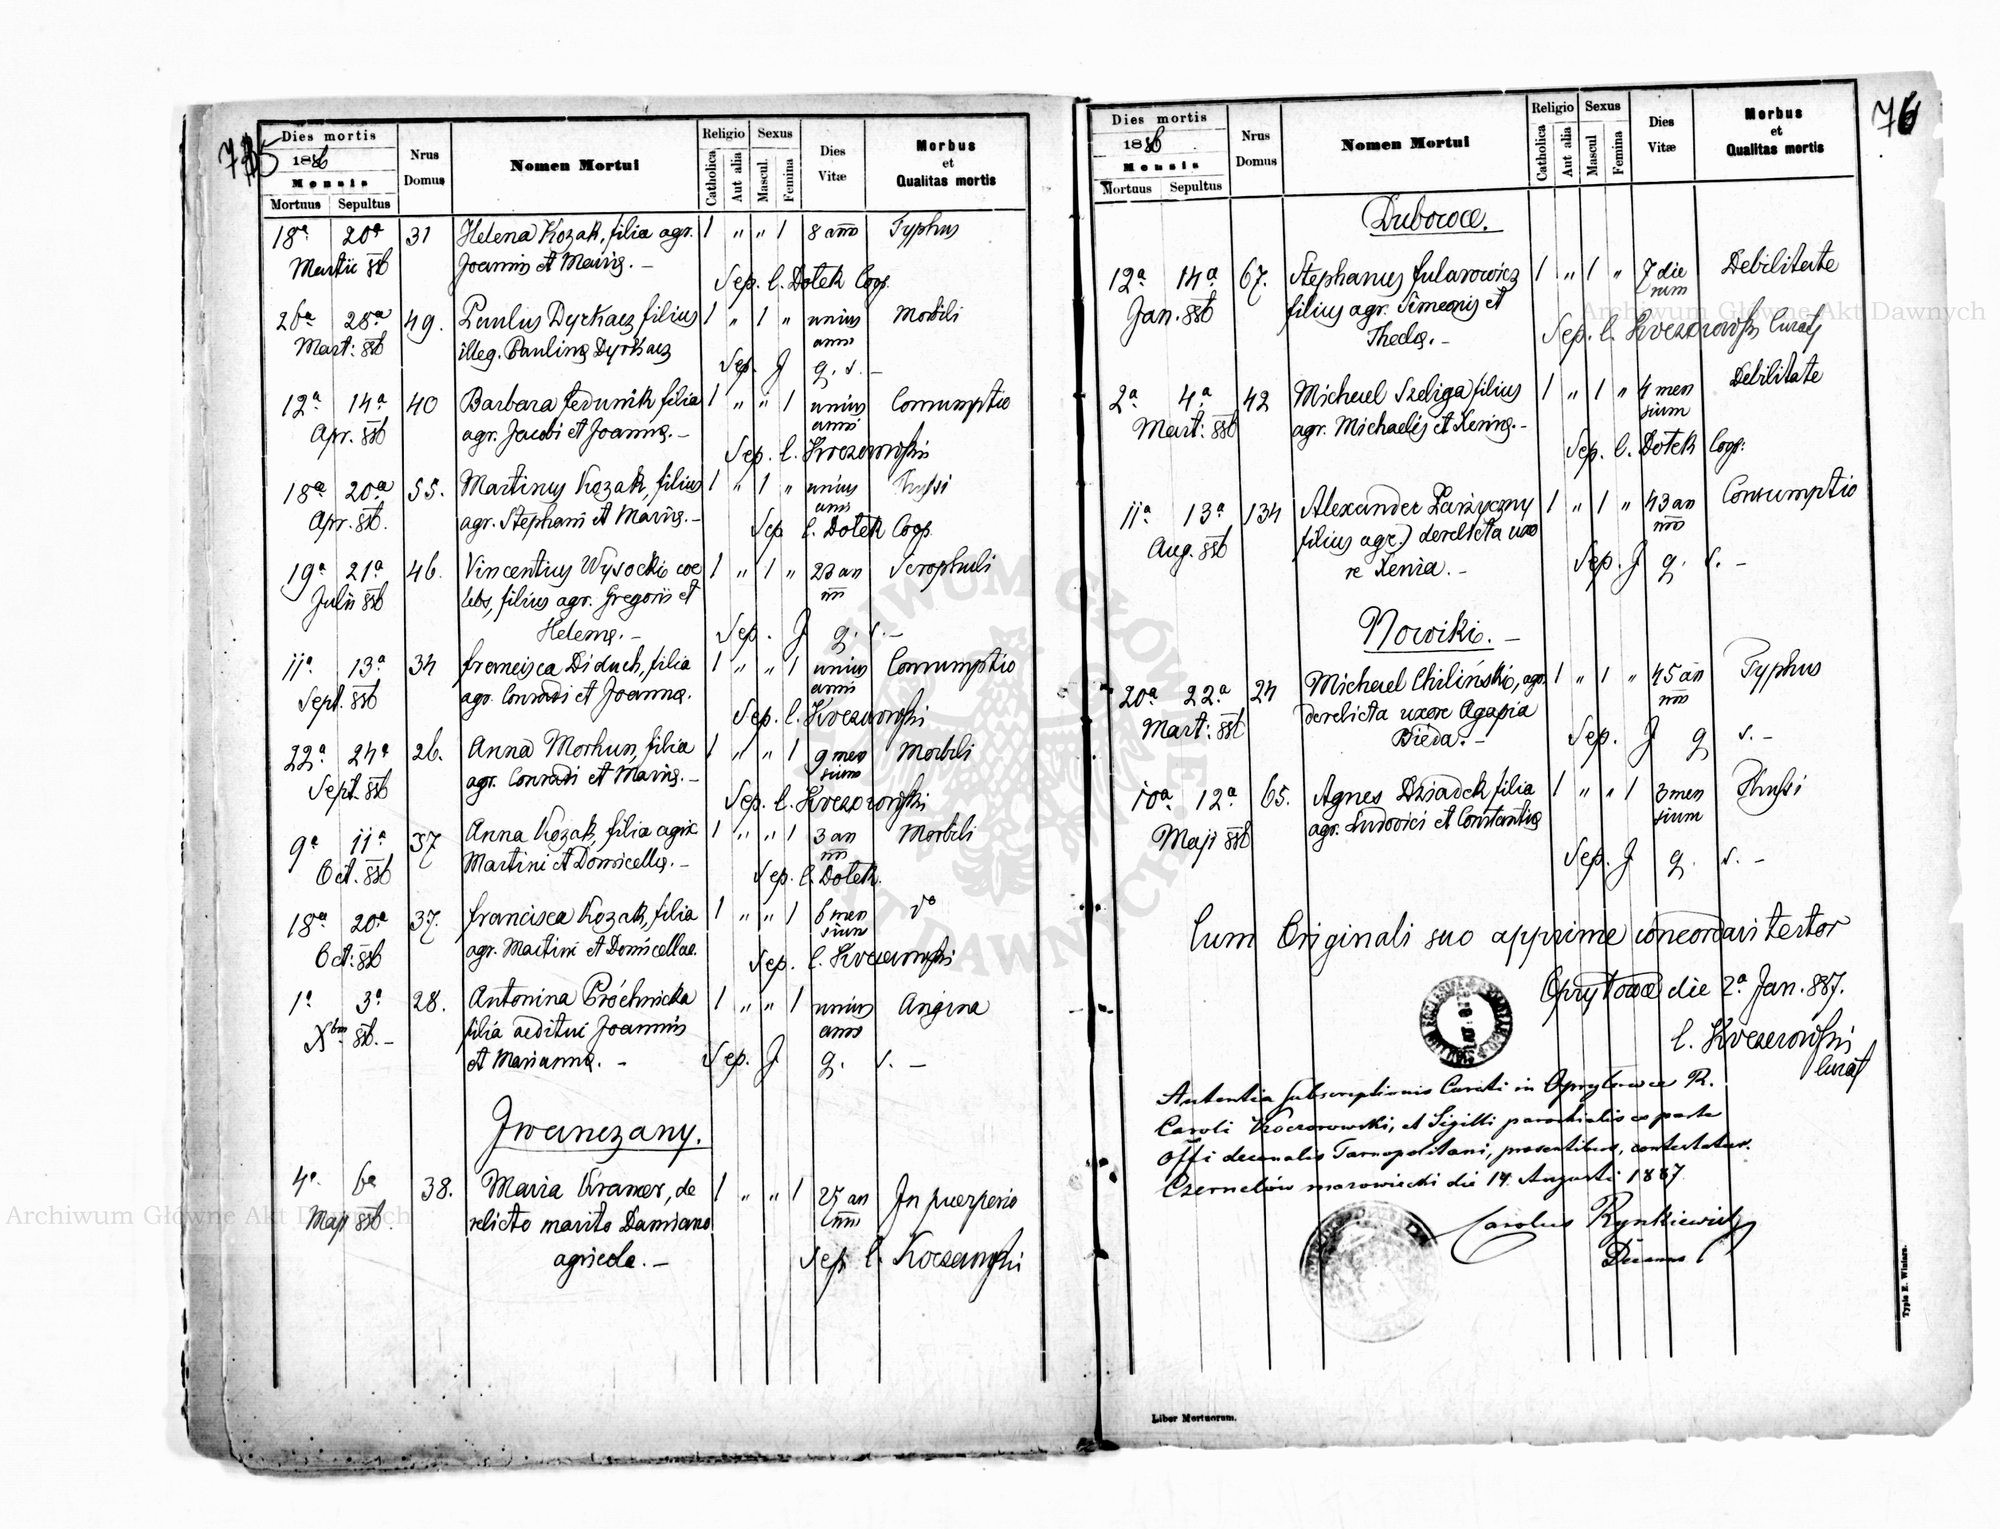 75
Dies mortis
1886
Mensis
Mortuus Sepultus
Nrus Domus
Nomen Mortui
Religio
Catholica
Aut alia
Sexus
Mascul.
Femina
Dies Vitæ
Morbus et Qualitas mortis
18ª 20ª 31 Helena Kozak, filia agr. 1 „ „ 1 8 ann Typhus
Martii 886 Joannis et Mariæ. –
Sep. C. Dotek Coop.
26ª 28ª 49. Paulus Dyrkacz filius 1 „ 1 „ unius Morbili
Mart: 886 illeg. Paulinæ Dyrkacz anni
Sep. J q. s. –
12ª 14ª 40 Barbara Fedunik filia 1 „ „ 1 unius Consumptio
Apr. 886 agr. Jacobi et Joannæ. – anni
Sep. C. Koczorowski
18ª 20ª 55. Martinus Kozak, filius 1 „ 1 „ unius Thussi
Apr. 886. agr. Stephani et Mariæ. – anni
Sep. C. Dotek Coop.
19ª 21ª 46. Vincentius Wysocki coe 1 „ 1 „ 23 an Scrophuli
Julii 886 lebs, filius agr. Gregorii et
Helenæ. –
Sep. J q. s. –
11ª 13ª 34 Francisca Diduch, filia 1 „ „ 1 unius Consumptio
Sept. 886 agr. Conradi et Joannæ. anni
Sep. C. Koczorowski
22ª 24ª 26. Anna Morhun, filia 1 „ „ 1 9 men Morbili
Sept. 886 agr. Conradi et Mariæ. – sium
Sep. C. Koczorowski
9ª 11ª 37 Anna Kozak, filia agric 1 „ „ 1 3 an Morbili
Oct. 886 Martini et Domicellæ. –
Sep. C. Dotek.
18ª 20ª 37. Francisca Kozak, filia 1 „ „ 1 6 men dº
Oct: 886 agr. Martini et Domicellae. sium
Sep. C. Koczorowski
1ª 3ª 28. Antonina Próchnicka 1 „ „ 1 unius Angina
Xbris 886. – filia aeditui Joannis anni
et Mariannæ. –
Sep. J. q. s. –
Iwanczany.
4ª 6ª 38. Maria Kramer, de 1 „ „ 1 25 an In puerperio
Maji 886. relicto marito Damiano
agricola. –
Sep. C. Koczorowski
76
Dies mortis
1886
Mensis
Mortuus Sepultus
Nrus Domus
Nomen Mortui
Religio
Catholica
Aut alia
Sexus
Mascul
Femina
Dies Vitæ
Morbus et Qualitas mortis
Dubowce.
12ª 14ª 67. Stephanus Fularowicz 1 „ 1 „ 7 die Debilitate
Jan. 886 filius agr. Simeonis et rum
Theclæ. –
Sep. C. Koczorowski Curat
2ª 4ª 42 Michael Szeliga filius 1 „ 1 „ 4 men Debilitate
Mart: 886 agr. Michaelis et Xeniæ. – sium
Sep. C. Dotek Coop:
11ª 13ª 134 Alexander Zarzyczny 1 „ 1 „ 43 an Consumptio
Aug. 886 filius agr.) derelicta uxo
re Xenia. –
Sep. J q. s. –
Nowiki. –
20ª 22ª 24 Michael Chiliński, agr. 1 „ 1 „ 45 an Typhus
Mart: 886 derelicta uxore Agapia
Bieda. –
Sep. J q s. –
10ª 12ª 65. Agnes Dziadek filia 1 „ „ 1 3 men Thussi
Maji 886 agr. Ludovici et Constantiæ sium
Sep. J q. s. –
Cum Originali suo apprime concordari testor
Opryłowce die 2ª Jan. 887.
C. Koczorowski
Curat
Autentia subscriptionis Curati in Opryłowce R.
Caroli Koczorowski, et Sigilli parochialis ex parte
Offi decanalis Tarnopolitani, praesentibus, contestatur.
Czernelów mazowiecki die 14 Augusti 1887
Carolus Rynkiewicz
Decanus
Liber Mortuorum.
Typis E. Winiarz.
Archiwum Główne Akt Dawnych
Archiwum Główne Akt Dawnych
ARCHIWUM GŁÓWNE AKT DAWNYCH